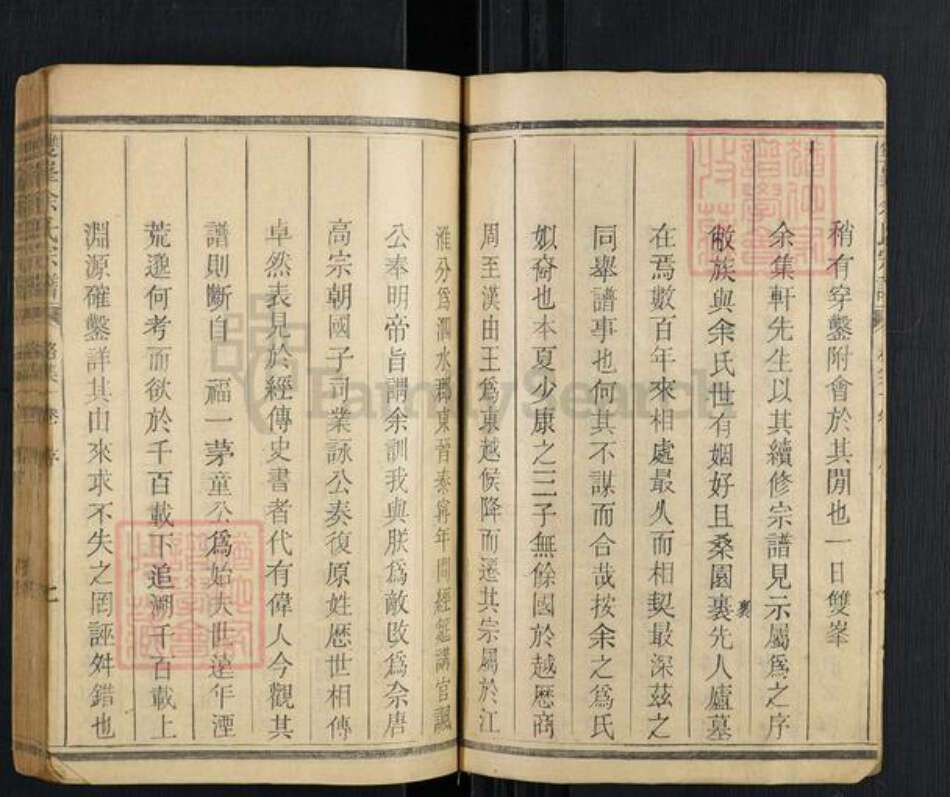 稍有穿鑿附會於其閒也一日雙峯
余集軒先生以其續修宗譜見示屬爲之序
敝族與余氏世有姻好且桑園裏先人廬墓
裏
在焉數百年來相處最久而相契最深茲之
同舉譜事也何其不謀而合哉按余之爲氏
姒裔也本夏少康之三子無餘國於越歷商
周至漢由王爲東越侯降而遷其宗屬於江
淮分爲泗水郡東晉泰寧年間經筵講官諷
公奉明帝旨謂余訓我與朕爲敵改爲佘唐
高宗朝國子司業詠公奏復原姓歷世相傳
卓然表見於經傳史書者代有偉人今觀其
譜則斷自 福一茅童公爲始夫世遠年湮
荒邈何考而欲於千百載下追溯千百載上
淵源確鑿詳其由來求不失之罔誣舛錯也
雙峯余氏宗譜
卷
序
FamilySearch